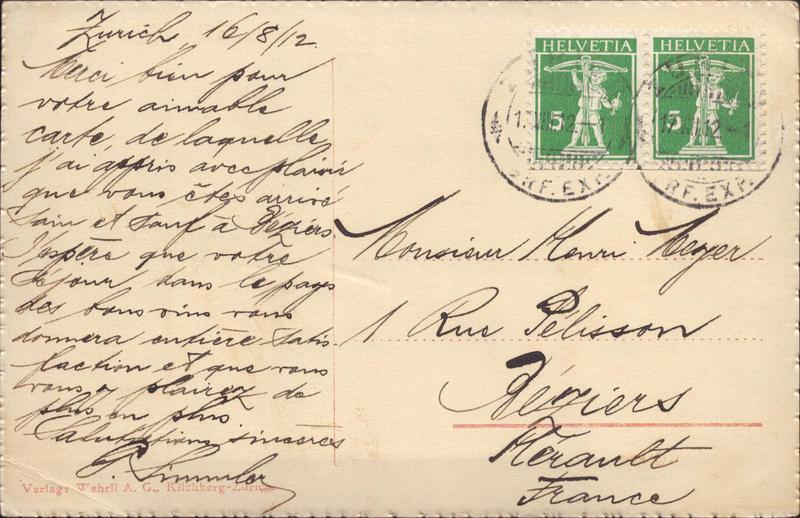 Zurich 16/8/12.
Merci bien pour
votre aimable
carte, de laquelle
j'ai appris avec plaisir
que vous êtes arrivé
sain et sauf à Béziers.
J'espère que votre
séjour dans le pays
des bons vins vous
donnera entière satis
faction et que vous
vous y plairez de
plus en plus.
Salutations sincères
Simmler
Verlag: Wehrli A. G., Kilchberg-Zürich
HELVETIA
5
HELVETIA
5
BRF. EXP.
BRF. EXP.
Monsieur Henri Meyer
1 Rue Pélisson
Béziers
Hérault
France